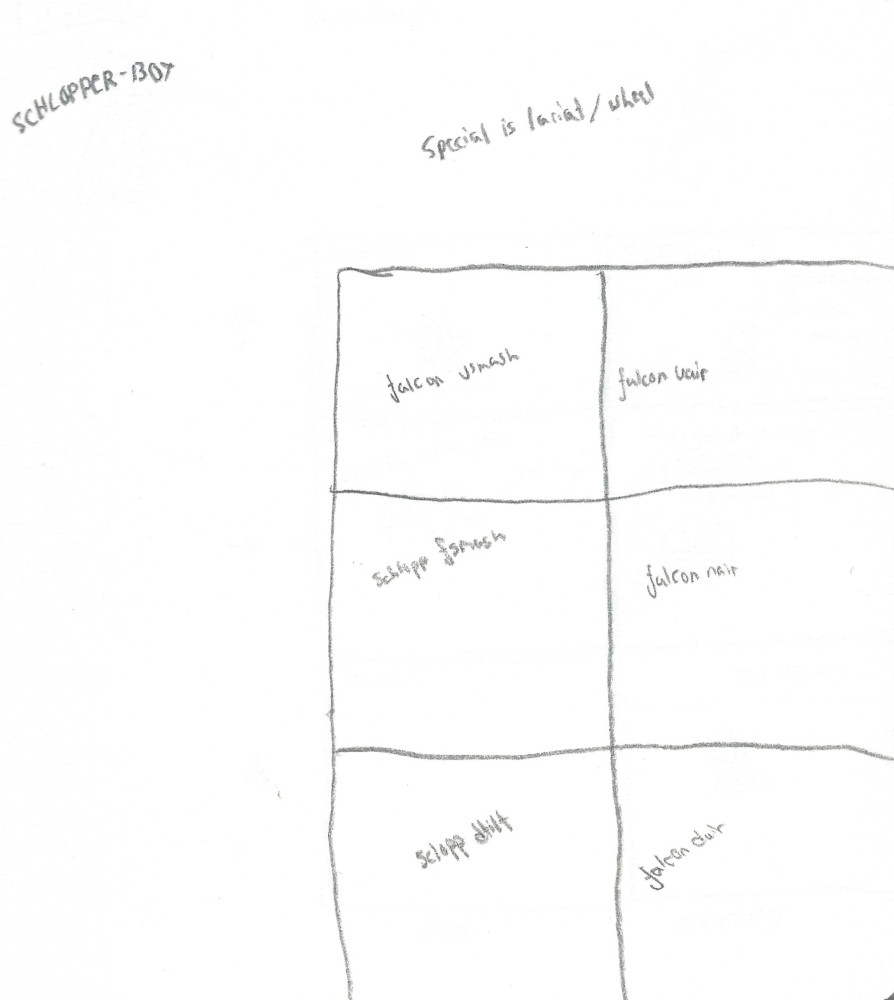 SCHLOPPER-BOY
Special is lariat/wheel
falcon usmash
falcon uair
schlopp fsmash
falcon nair
sclopp dtilt
falcon dair